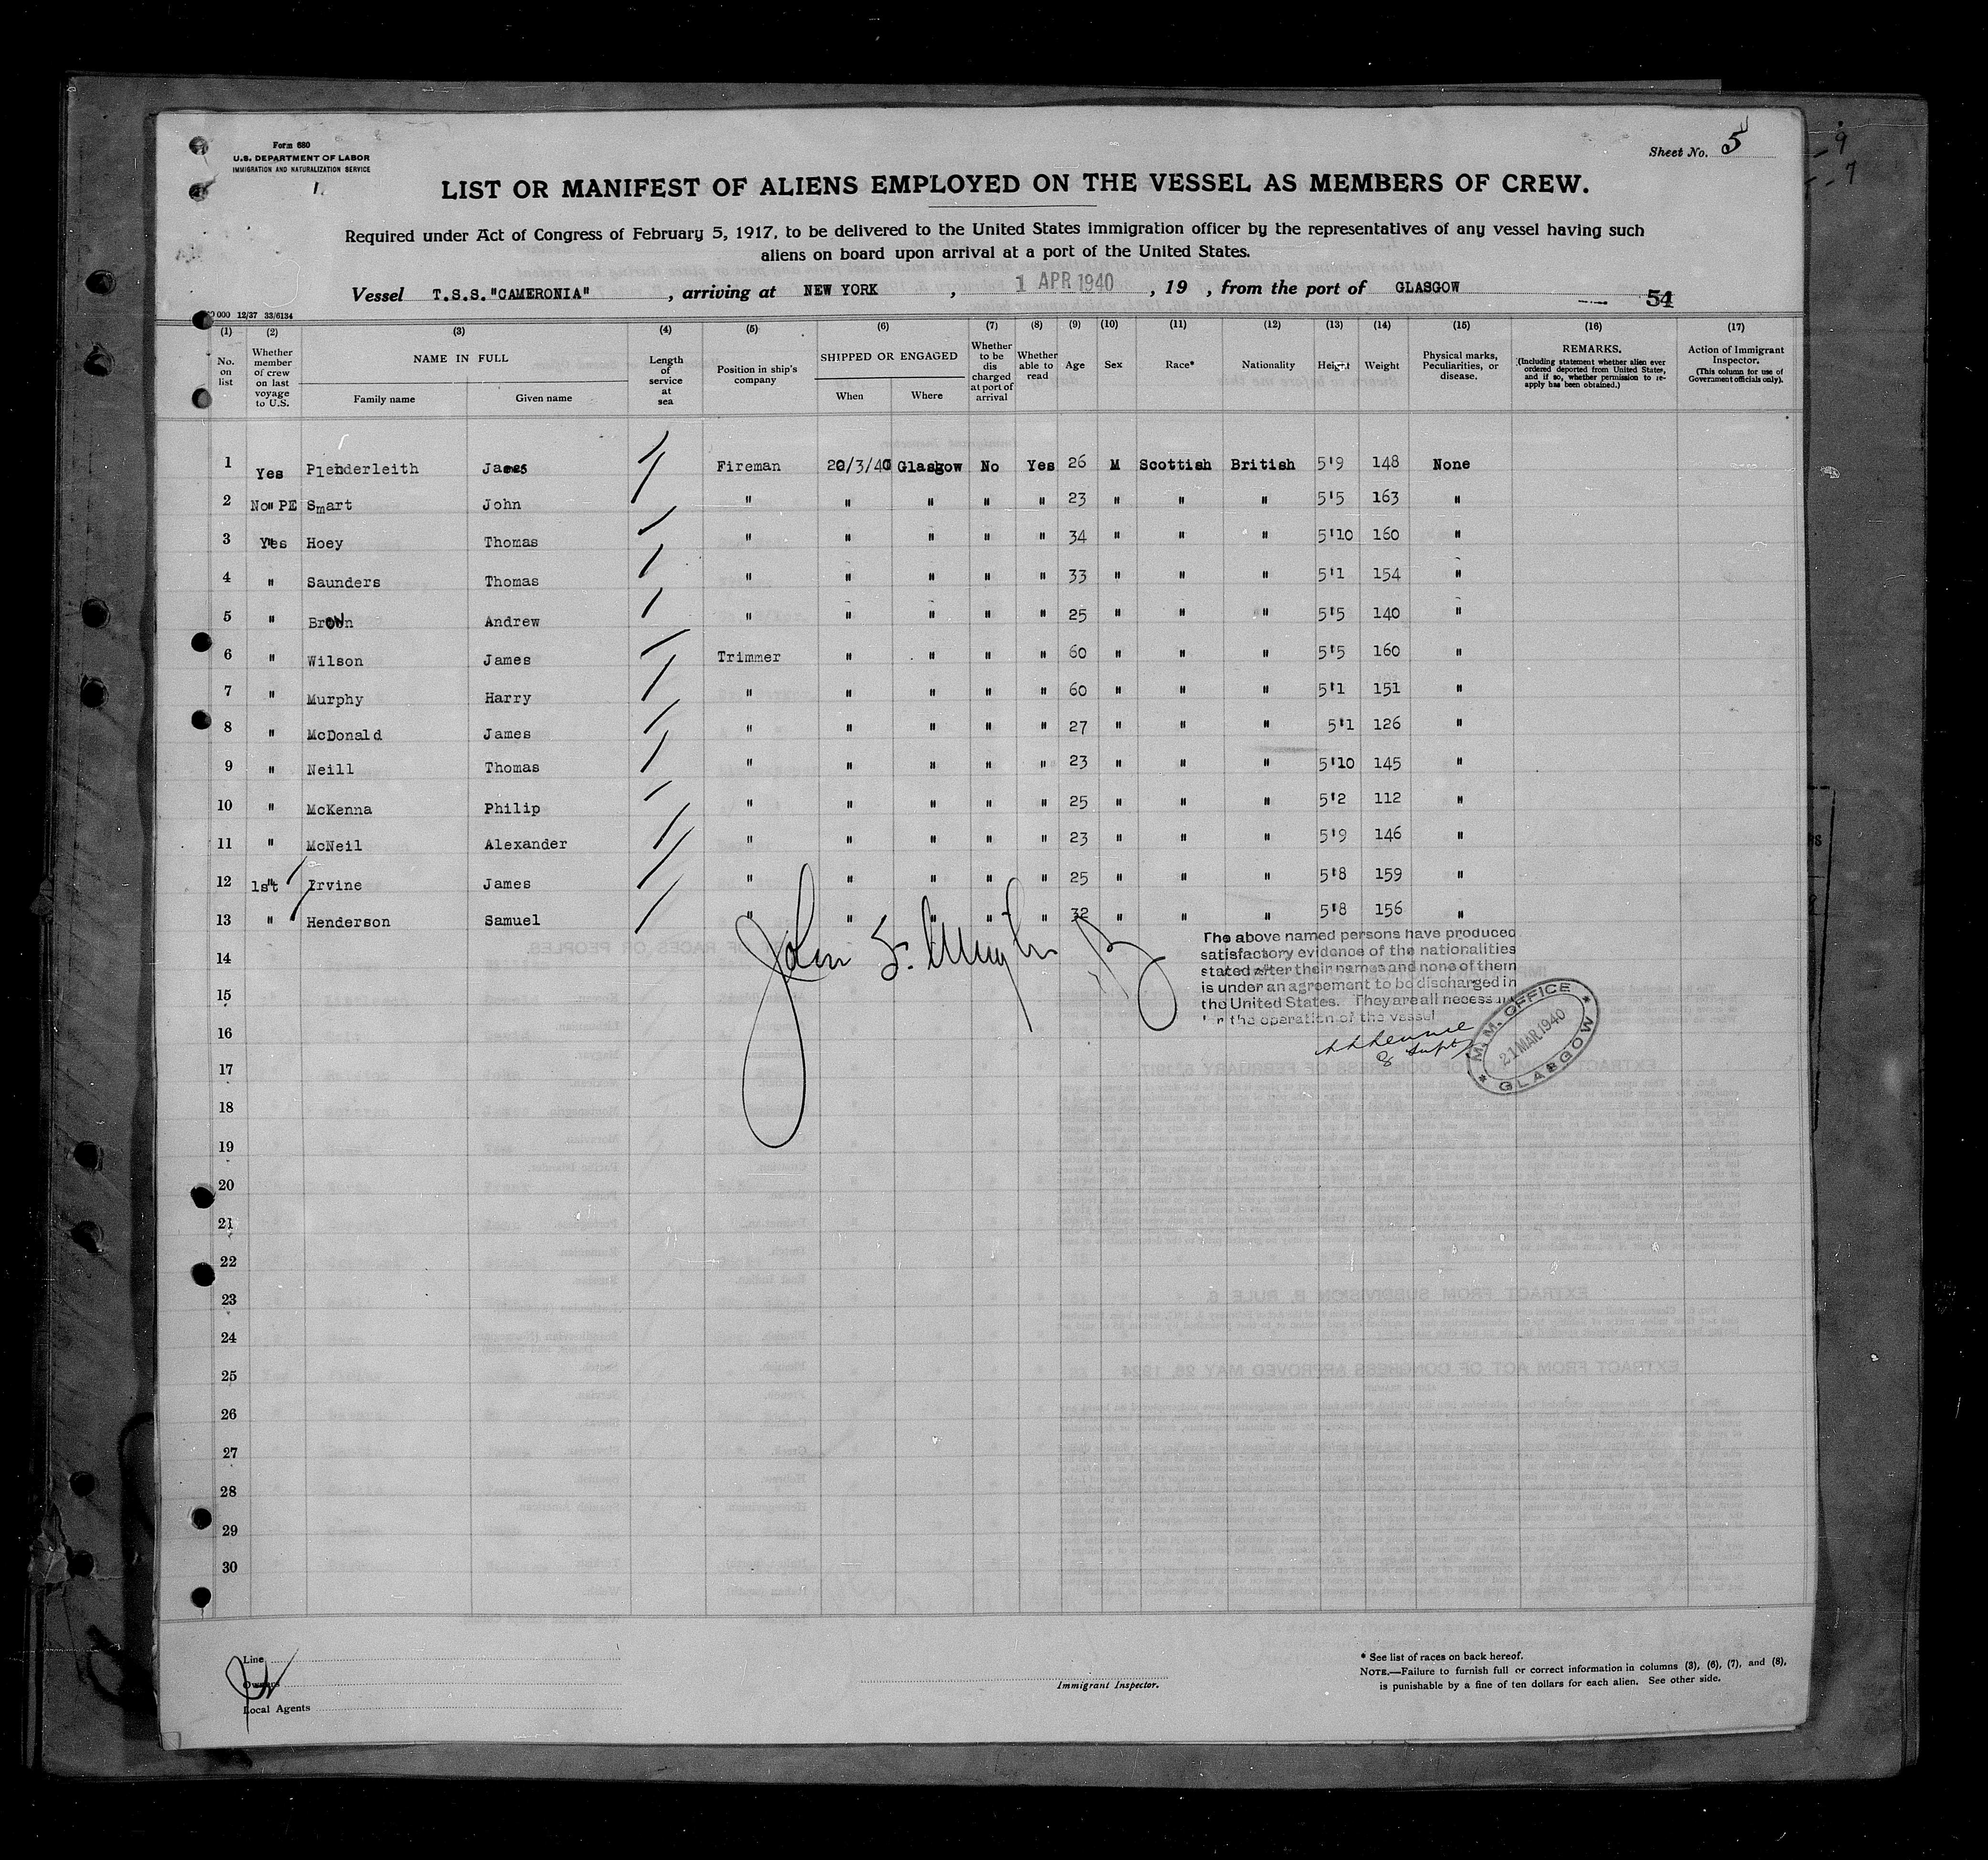 Form 680
U.S. DEPARTMENT OF LABOR
IMMIGRATION AND NATURALIZATION SERVICE
1.
Sheet No. 5
LIST OR MANIFEST OF ALIENS EMPLOYED ON THE VESSEL AS MEMBERS OF CREW.
Required under Act of Congress of February 5, 1917, to be delivered to the United States immigration officer by the representatives of any vessel having such
aliens on board upon arrival at a port of the United States.
Vessel T.S.S. "CAMERONIA" , arriving at NEW YORK , 1 APR 1940 , 19 , from the port of GLASGOW 54
000 12/37 33/6134
(1) (2) (3) (4) (5) (6) (7) (8) (9) (10) (11) (12) (13) (14) (15) (16) (17)
No. on list Whether member of crew on last voyage to U.S. NAME IN FULL Family name Given name Length of service at sea Position in ship's company SHIPPED OR ENGAGED When Where Whether to be dis charged at port of arrival Whether able to read Age Sex Race* Nationality Height Weight Physical marks, Peculiarities, or disease. REMARKS. (Including statement whether alien ever ordered deported from United States, and if so, whether permission to re-apply has been obtained.) Action of Immigrant Inspector. (This column for use of Government officials only).
1 Yes Plenderleith James Fireman 20/3/40 Glasgow No Yes 26 M Scottish British 5'9 148 None
2 No" PE Smart John " " " " " 23 " " " 5'5 163 "
3 Yes Hoey Thomas " " " " " 34 " " " 5'10 160 "
4 " Saunders Thomas " " " " " 33 " " " 5'1 154 "
5 " Brown Andrew " " " " " 25 " " " 5'5 140 "
6 " Wilson James Trimmer " " " " 60 " " " 5'5 160 "
7 " Murphy Harry " " " " " 60 " " " 5'1 151 "
8 " McDonald James " " " " " 27 " " " 5'1 126 "
9 " Neill Thomas " " " " " 23 " " " 5'10 145 "
10 " McKenna Philip " " " " " 25 " " " 5'2 112 "
11 " McNeil Alexander " " " " " 23 " " " 5'9 146 "
12 1st Irvine James " " " " " 25 " " " 5'8 159 "
13 " Henderson Samuel " " " " " 32 " " " 5'8 156 "
14
15
16
17
18
19
20
21
22
23
24
25
26
27
28
29
30
John F.
The above named persons have produced
satisfactory evidence of the nationalities
stated after their names and none of them
is under an agreement to be discharged in
the United States. They are all necessary
for the operation of the vessel
M. M. OFFICE
21 MAR 1940
* GLASGOW *
Line
Owners
Local Agents
Immigrant Inspector.
* See list of races on back hereof.
NOTE.—Failure to furnish full or correct information in columns (3), (6), (7), and (8),
is punishable by a fine of ten dollars for each alien. See other side.